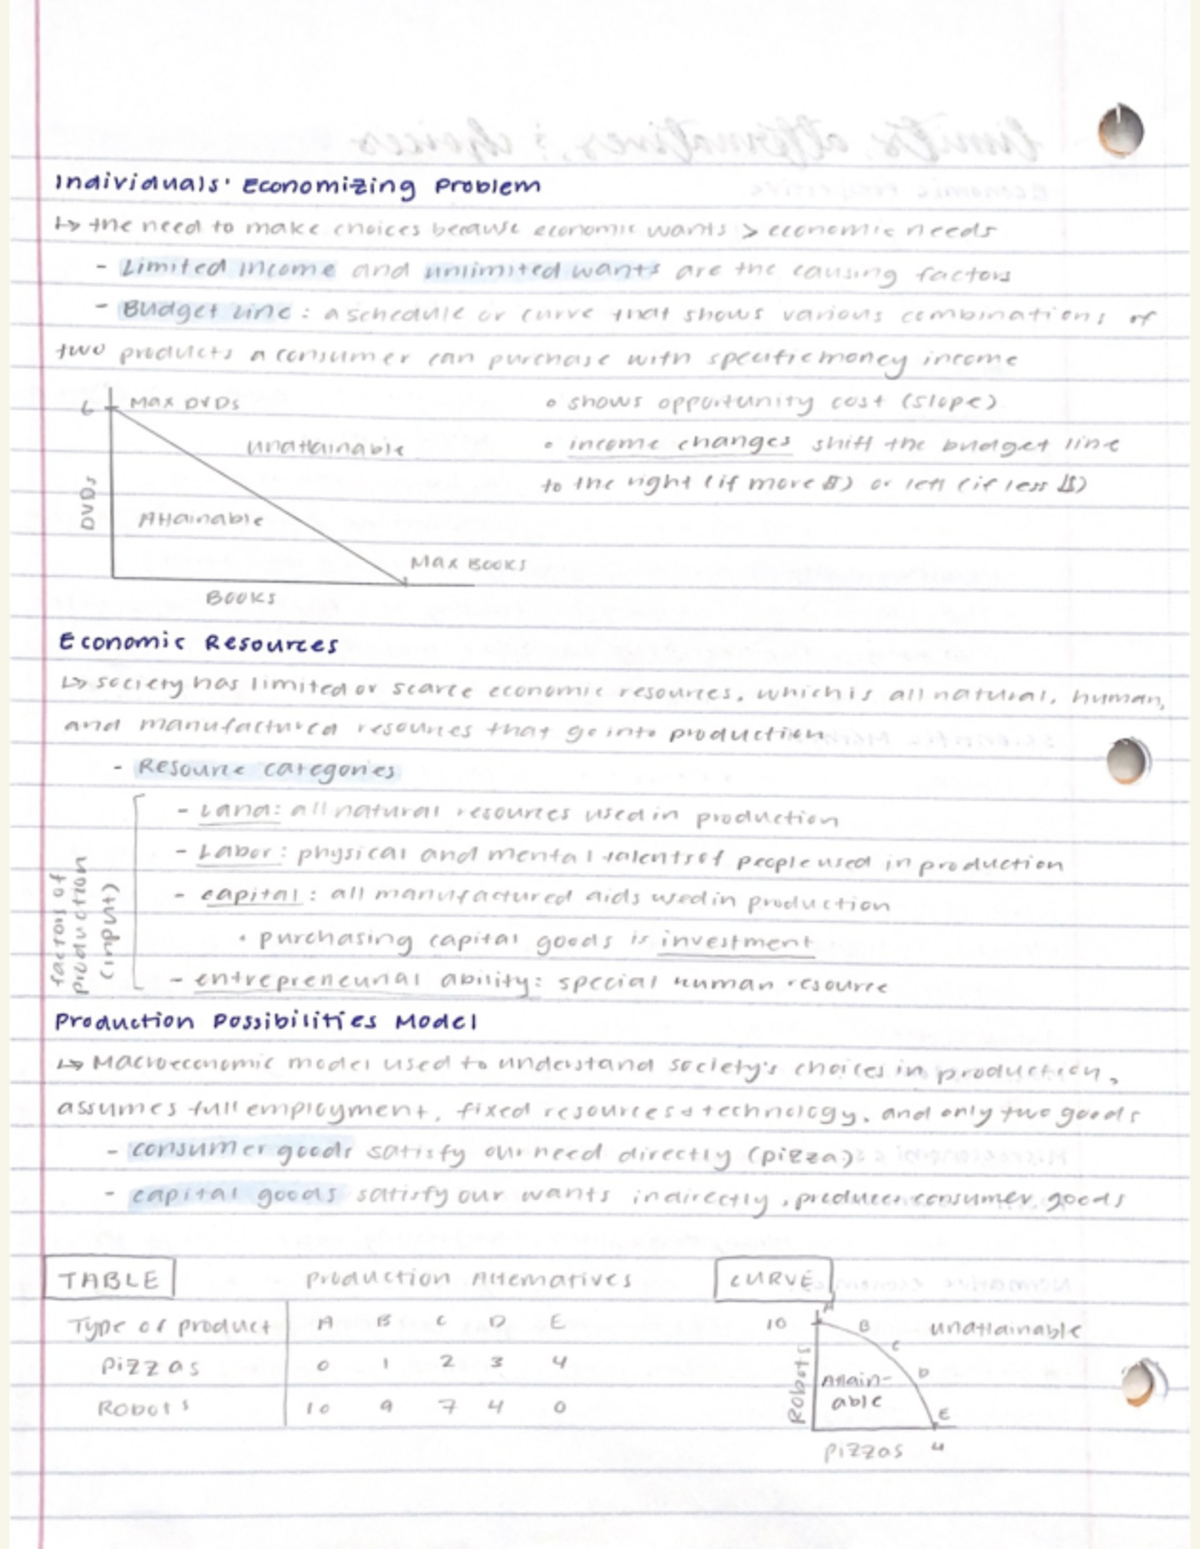 Individuals' Economizing Problem
↳ the need to make choices because economic wants > economic needs
- Limited income and unlimited wants are the causing factors
- Budget Line: a schedule or curve that shows various combinations of
two products a consumer can purchase with specific money income
6 Max DVDs
unattainable
DVDs
Attainable
Max Books
Books
• shows opportunity cost (slope)
• income changes shift the budget line
to the right (if more $) or left (if less $)
Economic Resources
↳ society has limited or scarce economic resources, which is all natural, human,
and manufactured resources that go into production
- Resource categories
factors of
production
(input)
- Land: all natural resources used in production
- Labor: physical and mental talents of people used in production
- capital: all manufactured aids used in production
• purchasing capital goods is investment
- entrepreneurial ability: special human resource
Production Possibilities Model
↳ Macroeconomic model used to understand society's choices in production,
assumes full employment, fixed resources & technology, and only two goods
- consumer goods satisfy our need directly (pizza)
- capital goods satisfy our wants indirectly, consumer goods
TABLE Production Alternatives
Type of product A B C D E
Pizzas 0 1 2 3 4
Robots 10 9 7 4 0
CURVE
10 A B C D E
unattainable
Robots
Attain-
able
Pizzas 4